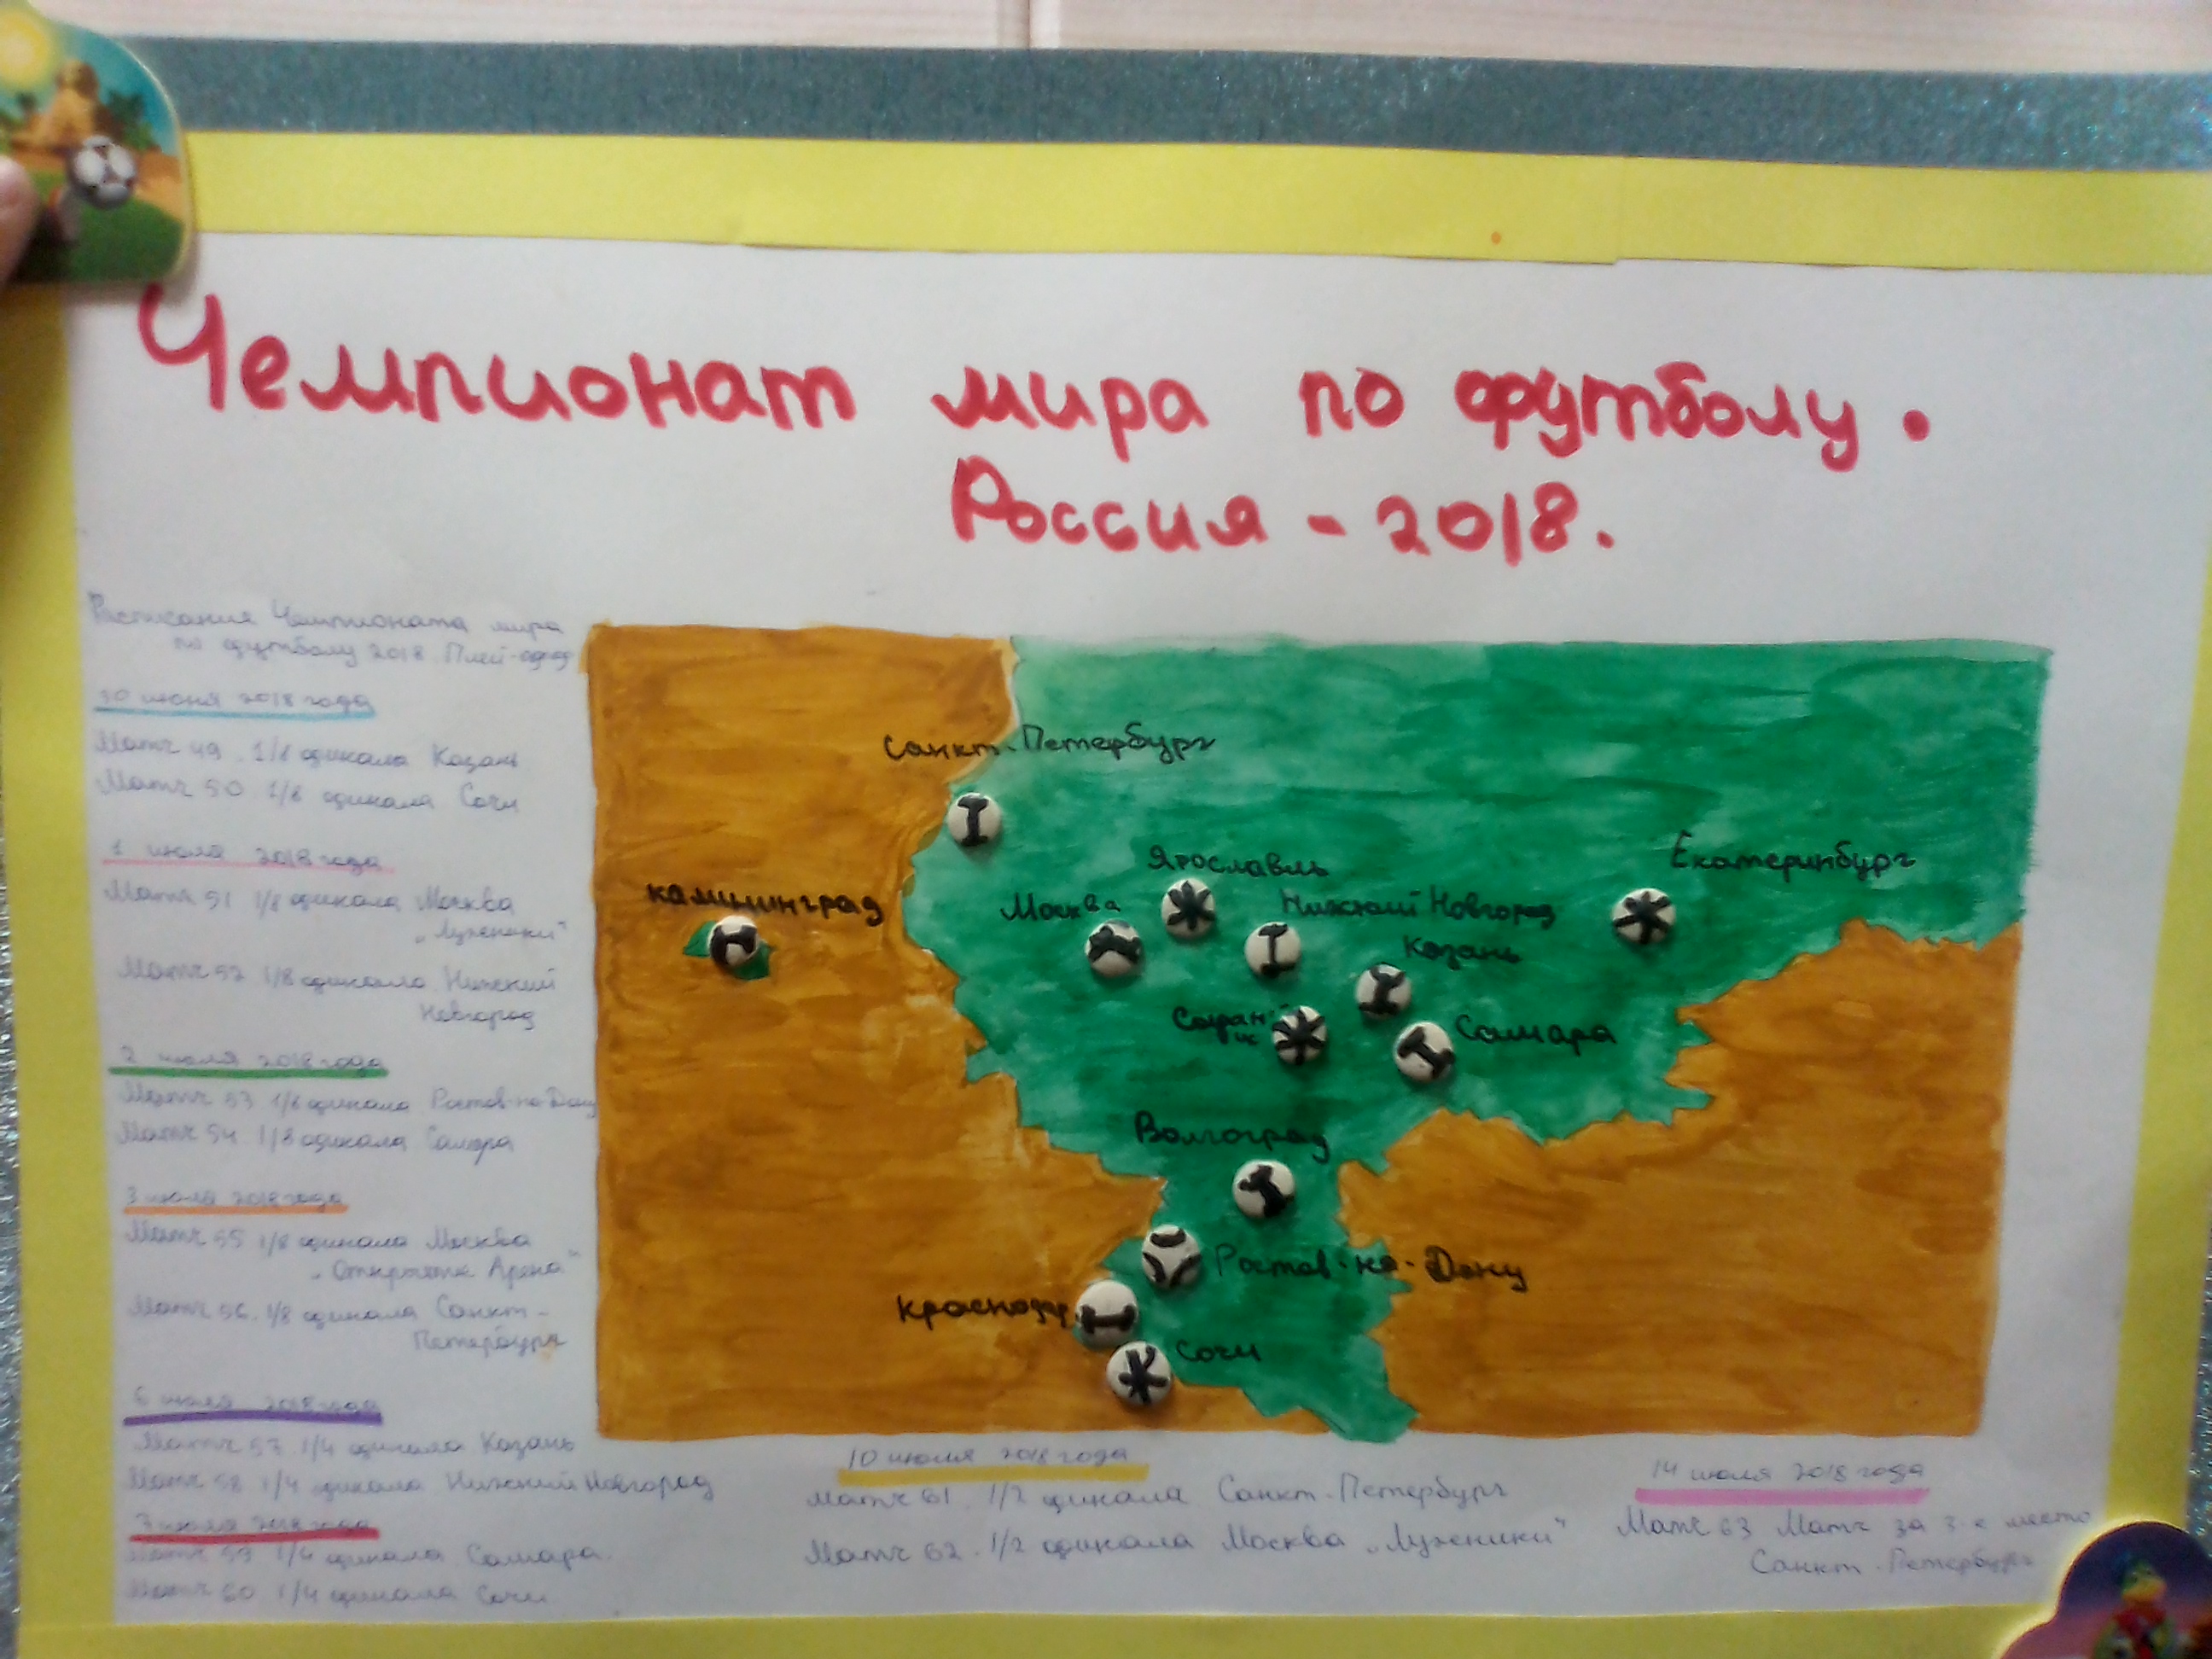 Чемпионат мира по футболу.
Россия - 2018.
Расписания Чемпионата мира
по футболу 2018 Плей-офф
30 июня 2018 года
Матч 49. 1/8 финала Казань
Матч 50. 1/8 финала Сочи
1 июля 2018 года
Матч 51 1/8 финала Москва
„Лужники"
Матч 52 1/8 финала Нижний
Новгород
2 июля 2018 года
Матч 53 1/8 финала Ростов-на-Дону
Матч 54 1/8 финала Самара
3 июля 2018 года
Матч 55 1/8 финала Москва
„Открытие Арена"
Матч 56. 1/8 финала Санкт-
Петербург
6 июля 2018 года
Матч 57 1/4 финала Казань
Матч 58 1/4 финала Нижний Новгород
7 июля 2018 года
Матч 59 1/4 финала Самара.
Матч 60 1/4 финала Сочи
Санкт-Петербург
Калининград
Москва
Ярославль
Нижний Новгород
Казань
Екатеринбург
Самара
Волгоград
Ростов-на-Дону
Краснодар
Сочи
10 июля 2018 года
Матч 61. 1/2 финала Санкт-Петербург
Матч 62. 1/2 финала Москва „Лужники"
14 июля 2018 года
Матч 63 Матч за 3-е место
Санкт-Петербург